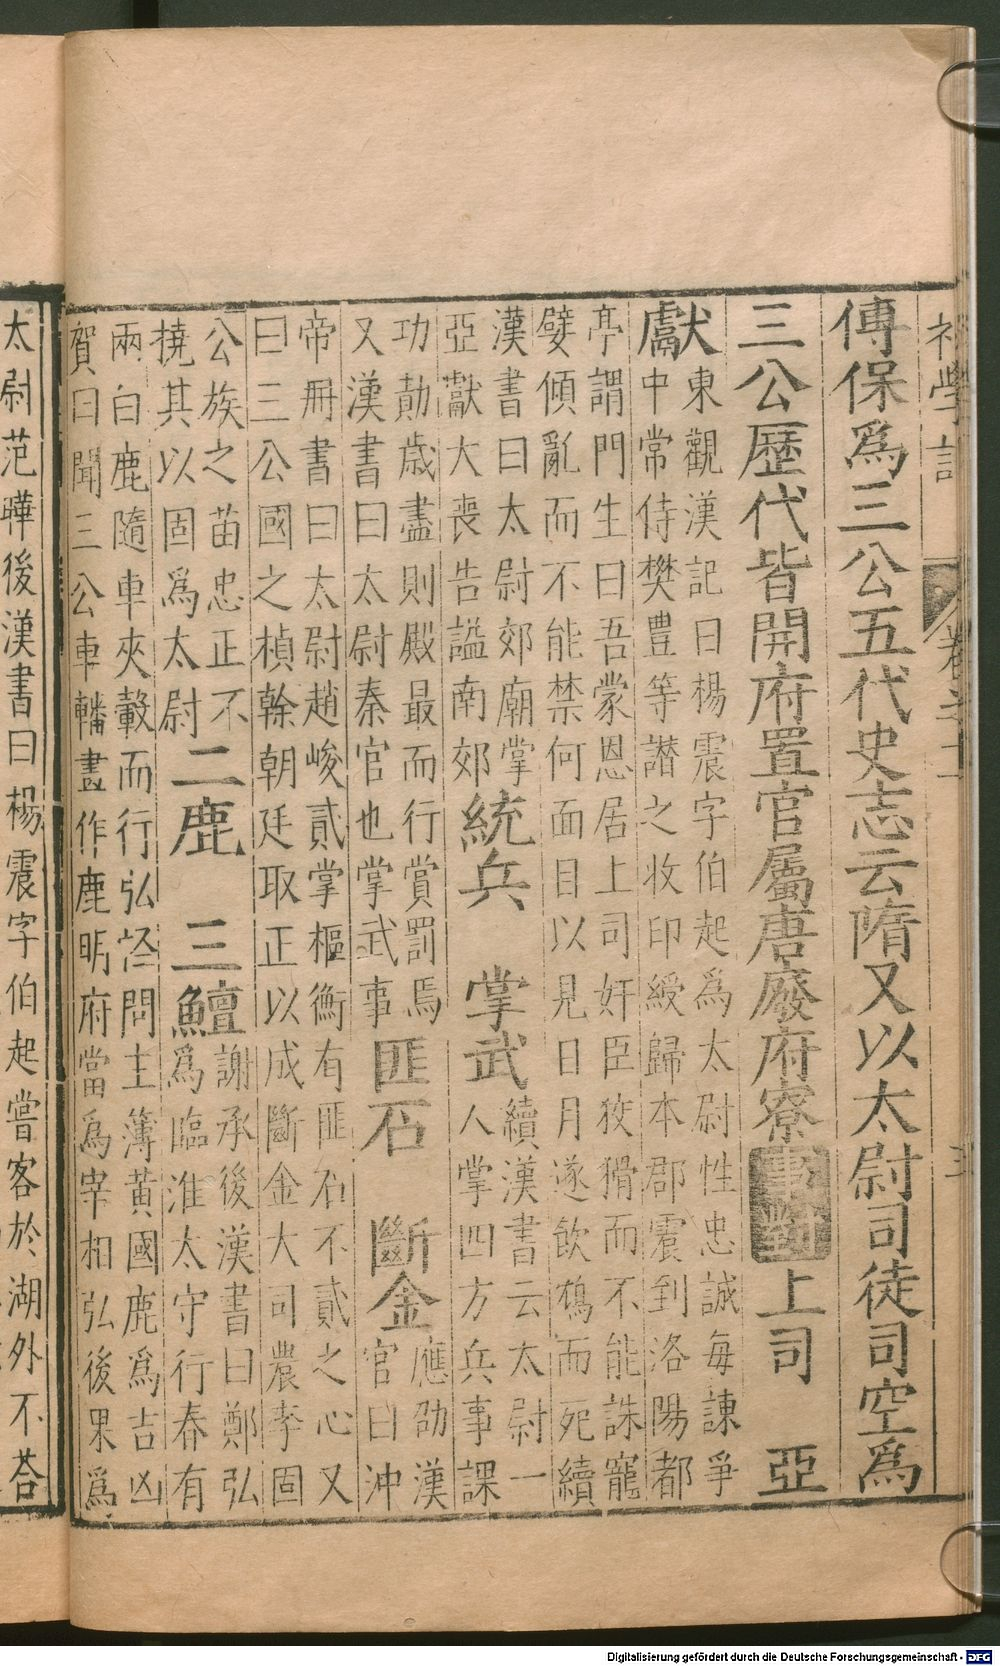 初學記
卷之十一
傅保爲三公五代史志云隋又以太尉司徒司空爲
三公歷代皆開府置官屬唐廢府寮事對上司 亞
獻東觀漢記曰楊震字伯起爲太尉性忠誠每諫爭
中常侍樊豊等譖之收印綬歸本郡震到洛陽都
亭謂門生曰吾蒙恩居上司奸臣狡猾而不能誅寵
嬖傾亂而不能禁何面目以見日月遂飲鴆而死續
漢書曰太尉郊廟掌
亞獻大喪告謚南郊統兵 掌武續漢書云太尉一
人掌四方兵事課
功勣歳盡則殿最而行賞罰焉
又漢書曰太尉秦官也掌武事匪石 斷金應劭漢
官曰沖
帝冊書曰太尉趙峻貳掌樞衡有匪石不貳之心又
曰三公國之楨幹朝廷取正以成斷金大司農李固
公族之苗忠正不
撓其以固爲太尉二鹿 三鱣謝承後漢書曰鄭弘
爲臨淮太守行春有
兩白鹿隨車夾轂而行弘怪問主簿黃國鹿爲吉凶
賀曰聞三公車轓畫作鹿明府當爲宰相弘後果爲
太尉范曄後漢書曰楊震字伯起嘗客於湖外不荅
Digitalisierung gefördert durch die Deutsche Forschungsgemeinschaft - DFG